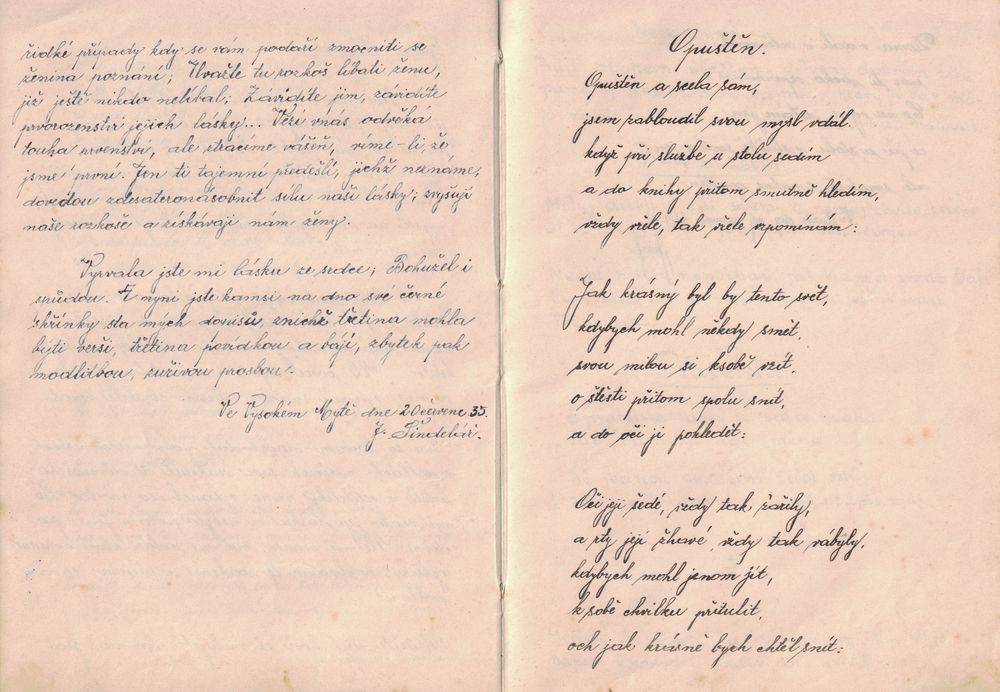 řidké případy kdy se vám podaří zmocniti se
ženina poznání; Uvažte tu rozkoš líbati ženu,
již ještě nikdo nelíbal; Závidíte jim, závidíte
prvorozenství jejich lásky... Vězí vnás odvěká
touha prvenství, ale ztracíme vášeň, víme-li, že
jsme první. Jen ti tajemní předešlí, jichž neznáme,
dovedou zdesateronásobnit sílu naší lásky; zvyšují
naše rozkoše a získávají nám ženy.
Vyrvala jste mi lásku ze srdce; Bohužel i
s nudou. A nyní jste kamsi na dno své černé
skřínky sta mých dopisů, znichž třetina mohla
býti verši, třetina povídkou a bájí, zbytek pak
modlitbou, zuřivou prosbou.
Ve Vysokém Mýtě dne 20 července 35.
J. Šindelář.
Opuštěn.
Opuštěn a scela sám,
jsem zabloudil svou myslí vdál.
když při službě u stolu sedím
a do knihy přitom smutně hledím,
vždy vřele, tak vřele vzpomínám:
Jak krásný byl by tento svět,
kdybych mohl někdy smět.
svou milou si ksobě vzít.
o štěstí přitom spolu snít,
a do očí jí pohledět:
Oči její šedé, vždy tak zářily,
a rty její žhavé, vždy tak vábyly.
kdybych mohl jenom jít,
k sobě chvilku přitulit,
och jak krásně bych chtěl snít: